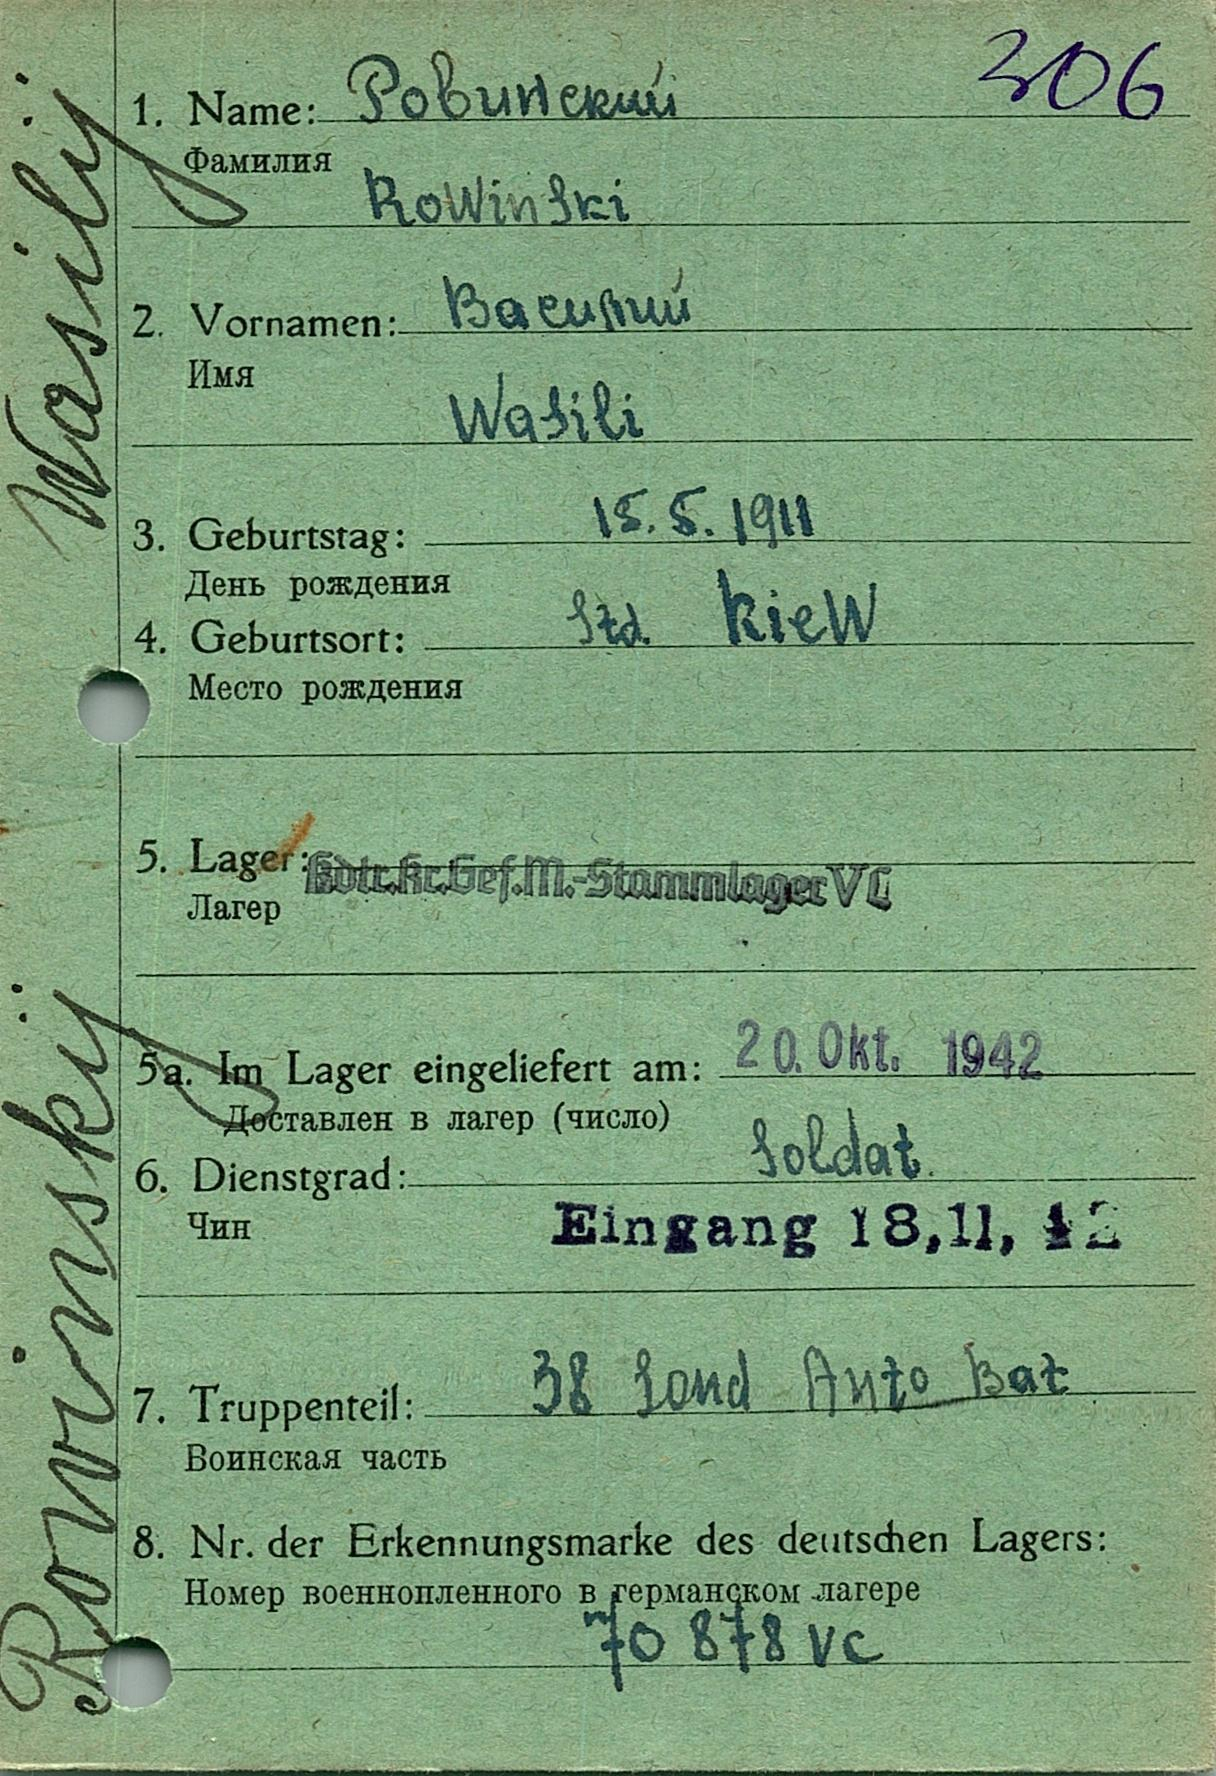 306
1. Name: Ровинский
Фамилия
Rowinski
2. Vornamen: Василий
Имя
Wasili
3. Geburtstag: 15.5.1911
День рождения
4. Geburtsort: Std. Kiew
Место рождения
5. Lager: Kdtr.Kr.Gef.M.-Stammlager VC
Лагер
5a. Im Lager eingeliefert am: 20. Okt. 1942
Доставлен в лагер (число)
6. Dienstgrad: Soldat.
Чин
Eingang 18,11, 42
7. Truppenteil: 38 Sond Auto Bat
Воинская часть
8. Nr. der Erkennungsmarke des deutschen Lagers:
Номер военнопленного в германском лагере
70 878 VC
Rovinskij Wasilij